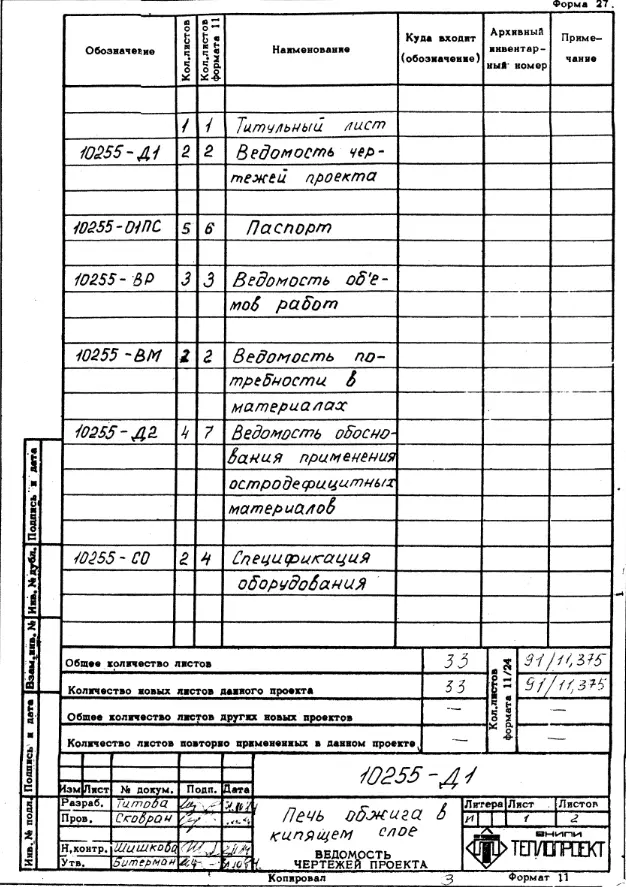 Форма 27.
Обозначение Кол.листов Кол.листов формата 11 Наименование Куда входит (обозначение) Архивный инвентарный номер Примечание
1 1 Титульный лист
10255-Д1 2 2 Ведомость чер-
тежей проекта
10255-01ПС 5 6 Паспорт
10255-ВР 3 3 Ведомость объе-
мов работ
10255-ВМ 2 2 Ведомость по-
требности в
материалах
10255-Д2 4 7 Ведомость обосно-
вания применения
остродефицитных
материалов
10255-СО 2 4 Спецификация
оборудования
Общее количество листов 33 Кол.листов формата 11/24 91/11,375
Количество новых листов данного проекта 33 91/11,375
Общее количество листов других новых проектов — —
Количество листов повторно примененных в данном проекте — —
Инв. № подл. Подпись и дата Взам.инв. № Инв. № дубл. Подпись и дата
10255-Д1
Изм Лист № докум. Подп. Дата
Разраб. Титова
Пров. Сковран
Н.контр. Шишкова
Утв. Битерман
Печь обжига в
кипящем слое
ВЕДОМОСТЬ
ЧЕРТЕЖЕЙ ПРОЕКТА
Литера Лист Листов
И 1 2
ВНИПИ
ТЕПЛОПРОЕКТ
Копировал 3 Формат 11